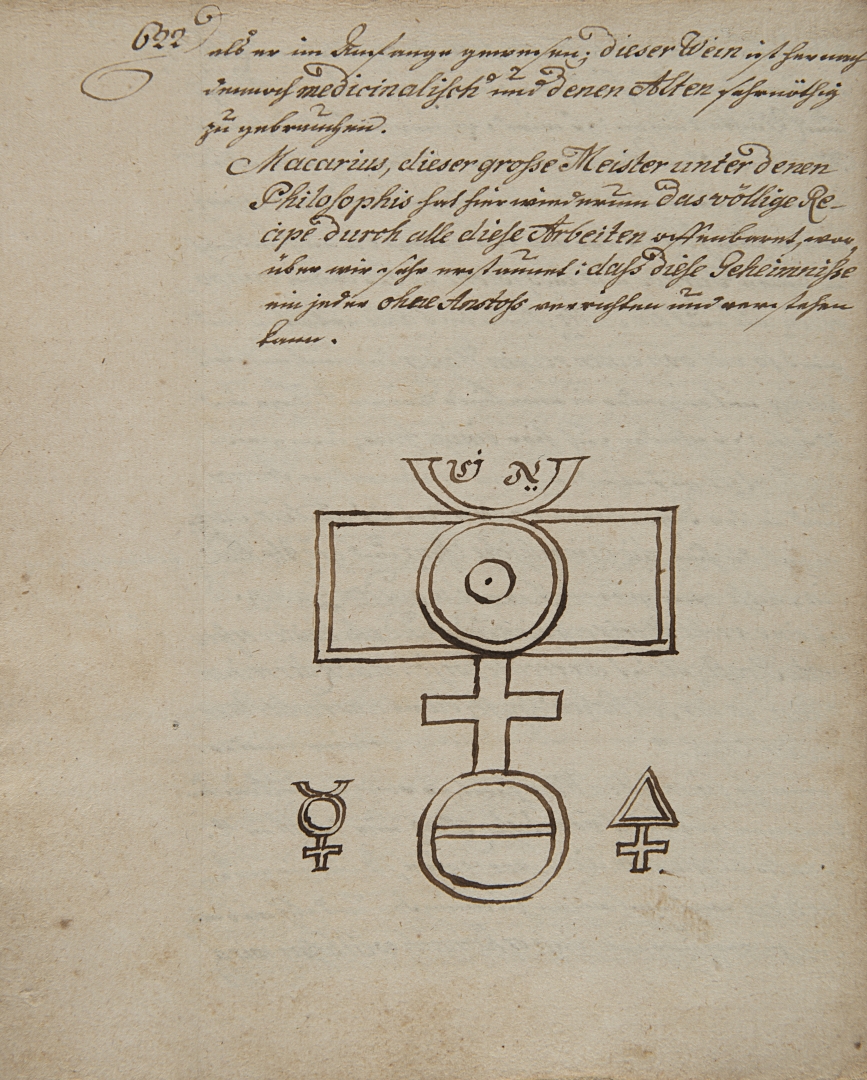 622
als er im Anfange gewesen; dieser Wein ist hernach
dennoch medicinalisch und denen Alten sehr nöthig
zu gebrauchen.
Macarius, dieser grosse Meister unter denen
Philosophis hat hier wiederum das völlige Re-
cipe durch alle diese Arbeiten offenbaret, wor,
über wir sehr erstaunet: dass diese Geheimnisse
ein jeder ohne Anstoss verrichten und verstehen
kann.